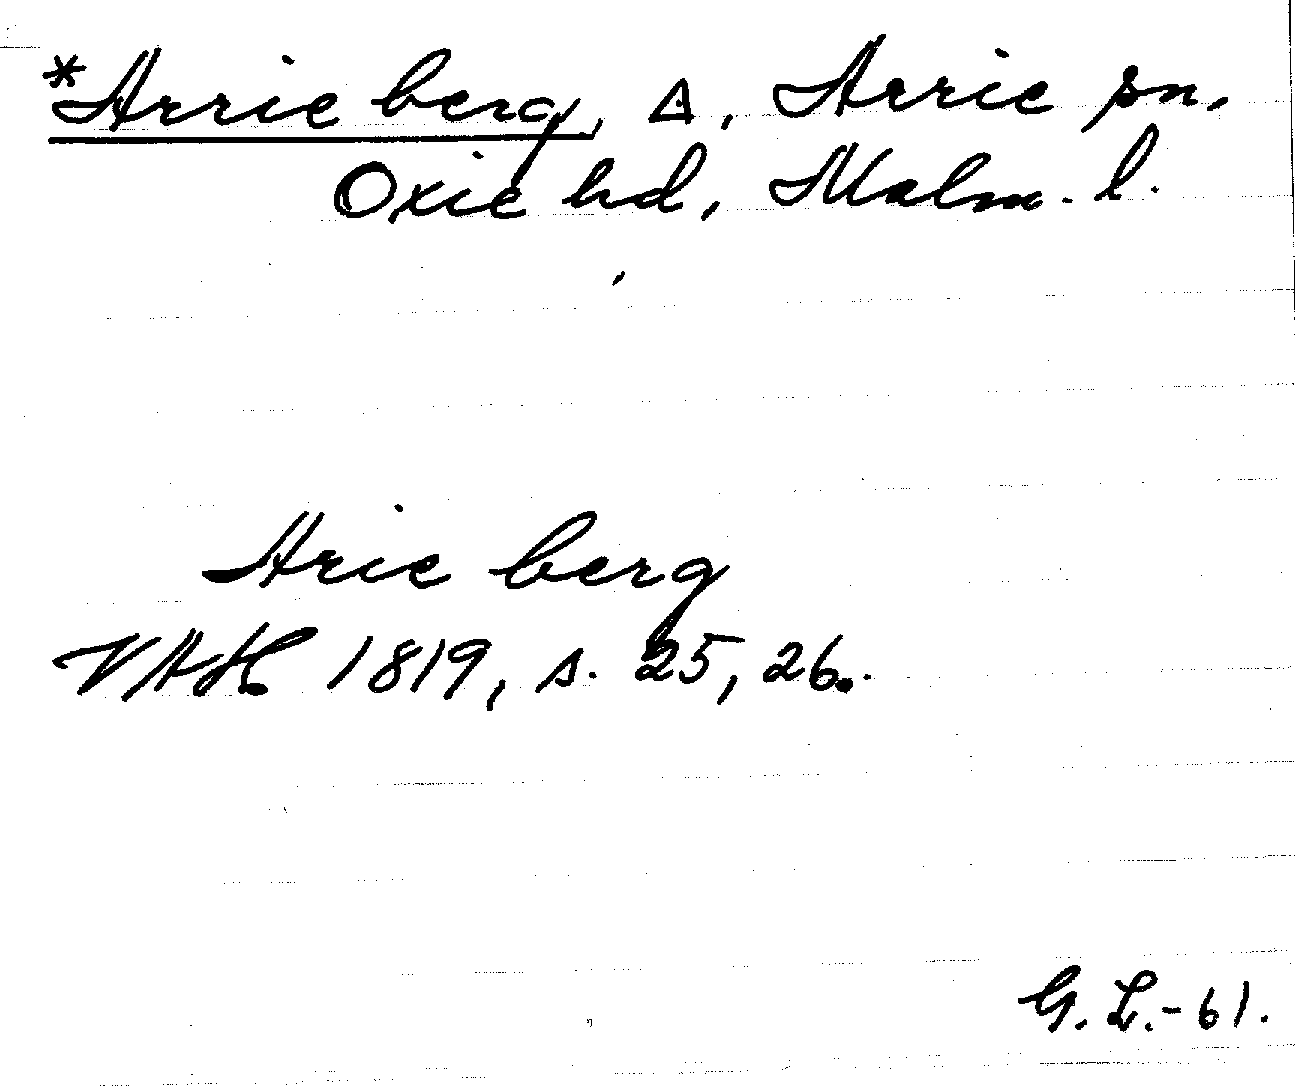 *Arrie berg, Δ, Arrie sn.
Oxie hd, Malm. l.
Arie berg
VAH 1819, s. 25, 26.
G. L.-61.